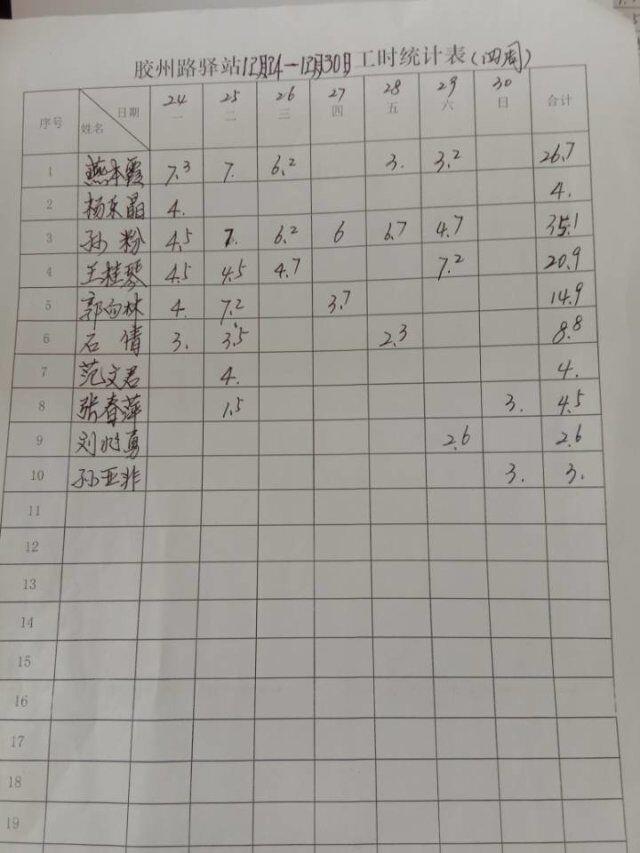 胶州路驿站12月24一12月30日工时统计表(四周)
序号 日期 姓名 24 一 25 二 26 三 27 四 28 五 29 六 30 日 合计
1 燕本霞 7.3 7. 6.2 3. 3.2 26.7
2 杨东晶 4. 4.
3 孙粉 4.5 7. 6.2 6 6.7 4.7 35.1
4 王桂琴 4.5 4.5 4.7 7.2 20.9
5 郭向林 4. 7.2 3.7 14.9
6 石倩 3. 3.5 2.3 8.8
7 范文君 4. 4.
8 张春萍 1.5 3. 4.5
9 刘 勇 2.6 2.6
10 孙亚非 3. 3.
11
12
13
14
15
16
17
18
19